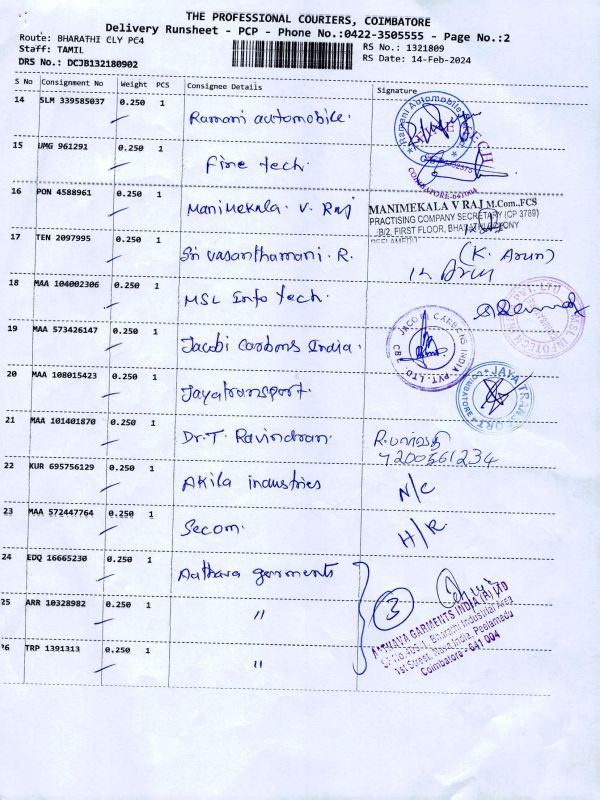 THE PROFESSIONAL COURIERS, COIMBATORE
Delivery Runsheet - PCP - Phone No.:0422-3505555 - Page No.:2
Route: BHARATHI CLY PC4
RS No.: 1321809
Staff: TAMIL
RS Date: 14-Feb-2024
DRS No.: DCJB132180902
S No Consignment No Weight PCS Consignee Details Signature
14 SLM 339585037 0.250 1 Ramani automobile.
Ramani Automobiles
15 UMG 961291 0.250 1 Fine tech.
COIMBATORE-641004
16 PON 4588961 0.250 1 Manimekala. V. Raj
MANIMEKALA V RAJ M.Com.,FCS
PRACTISING COMPANY SECRETARY (CP 3789)
B/2, FIRST FLOOR, BHARATHI COLONY
PEELAMEDU
17 TEN 2097995 0.250 1 Sri vasanthamani. R.
(K. Arun)
18 MAA 104002306 0.250 1 MSL Info tech.
19 MAA 573426147 0.250 1 Jacobi carbons India.
JACOBI CARBONS INDIA PVT. LTD. CBE
20 MAA 108015423 0.250 1 Jayatransport.
JAYA TRANSPORT COIMBATORE
21 MAA 101401870 0.250 1 Dr.T. Ravindran.
R.பார்வதி
7200561234
22 KUR 695756129 0.250 1 Akila industries
N/C
23 MAA 572447764 0.250 1 Secom.
H/R
24 EDQ 16665230 0.250 1 Aathava garments
25 ARR 10328982 0.250 1 "
3
26 TRP 1391313 0.250 1 "
AATHAVA GARMENTS INDIA (P) LTD
SF No.405-1, Bharathi Industrial Area
1st Street, Nava India, Peelamedu
Coimbatore - 641 004